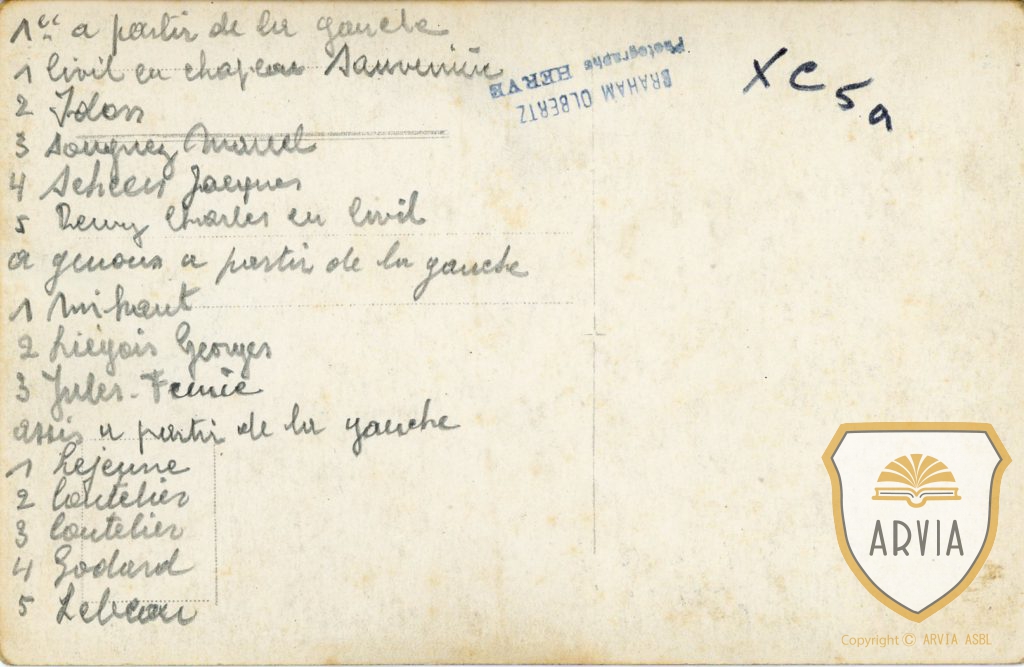 1er a partir de la gauche
1 Civil en chapeau Sauvenière
2 Idon
3 Dougnez Marcel
4 Scheen Jacques
5 Remy Charles en Civil
a genoux a partir de la gauche
1
2 Liégois Georges
3 Jules
assis a partir de la gauche
1 Lejeune
2 Coutelier
3 Coutelier
4 Godard
5 Lebeau
BRAHAM OLBERTZ
Photographe HERVE
XC5a
ARVIA
Copyright © ARVIA ASBL